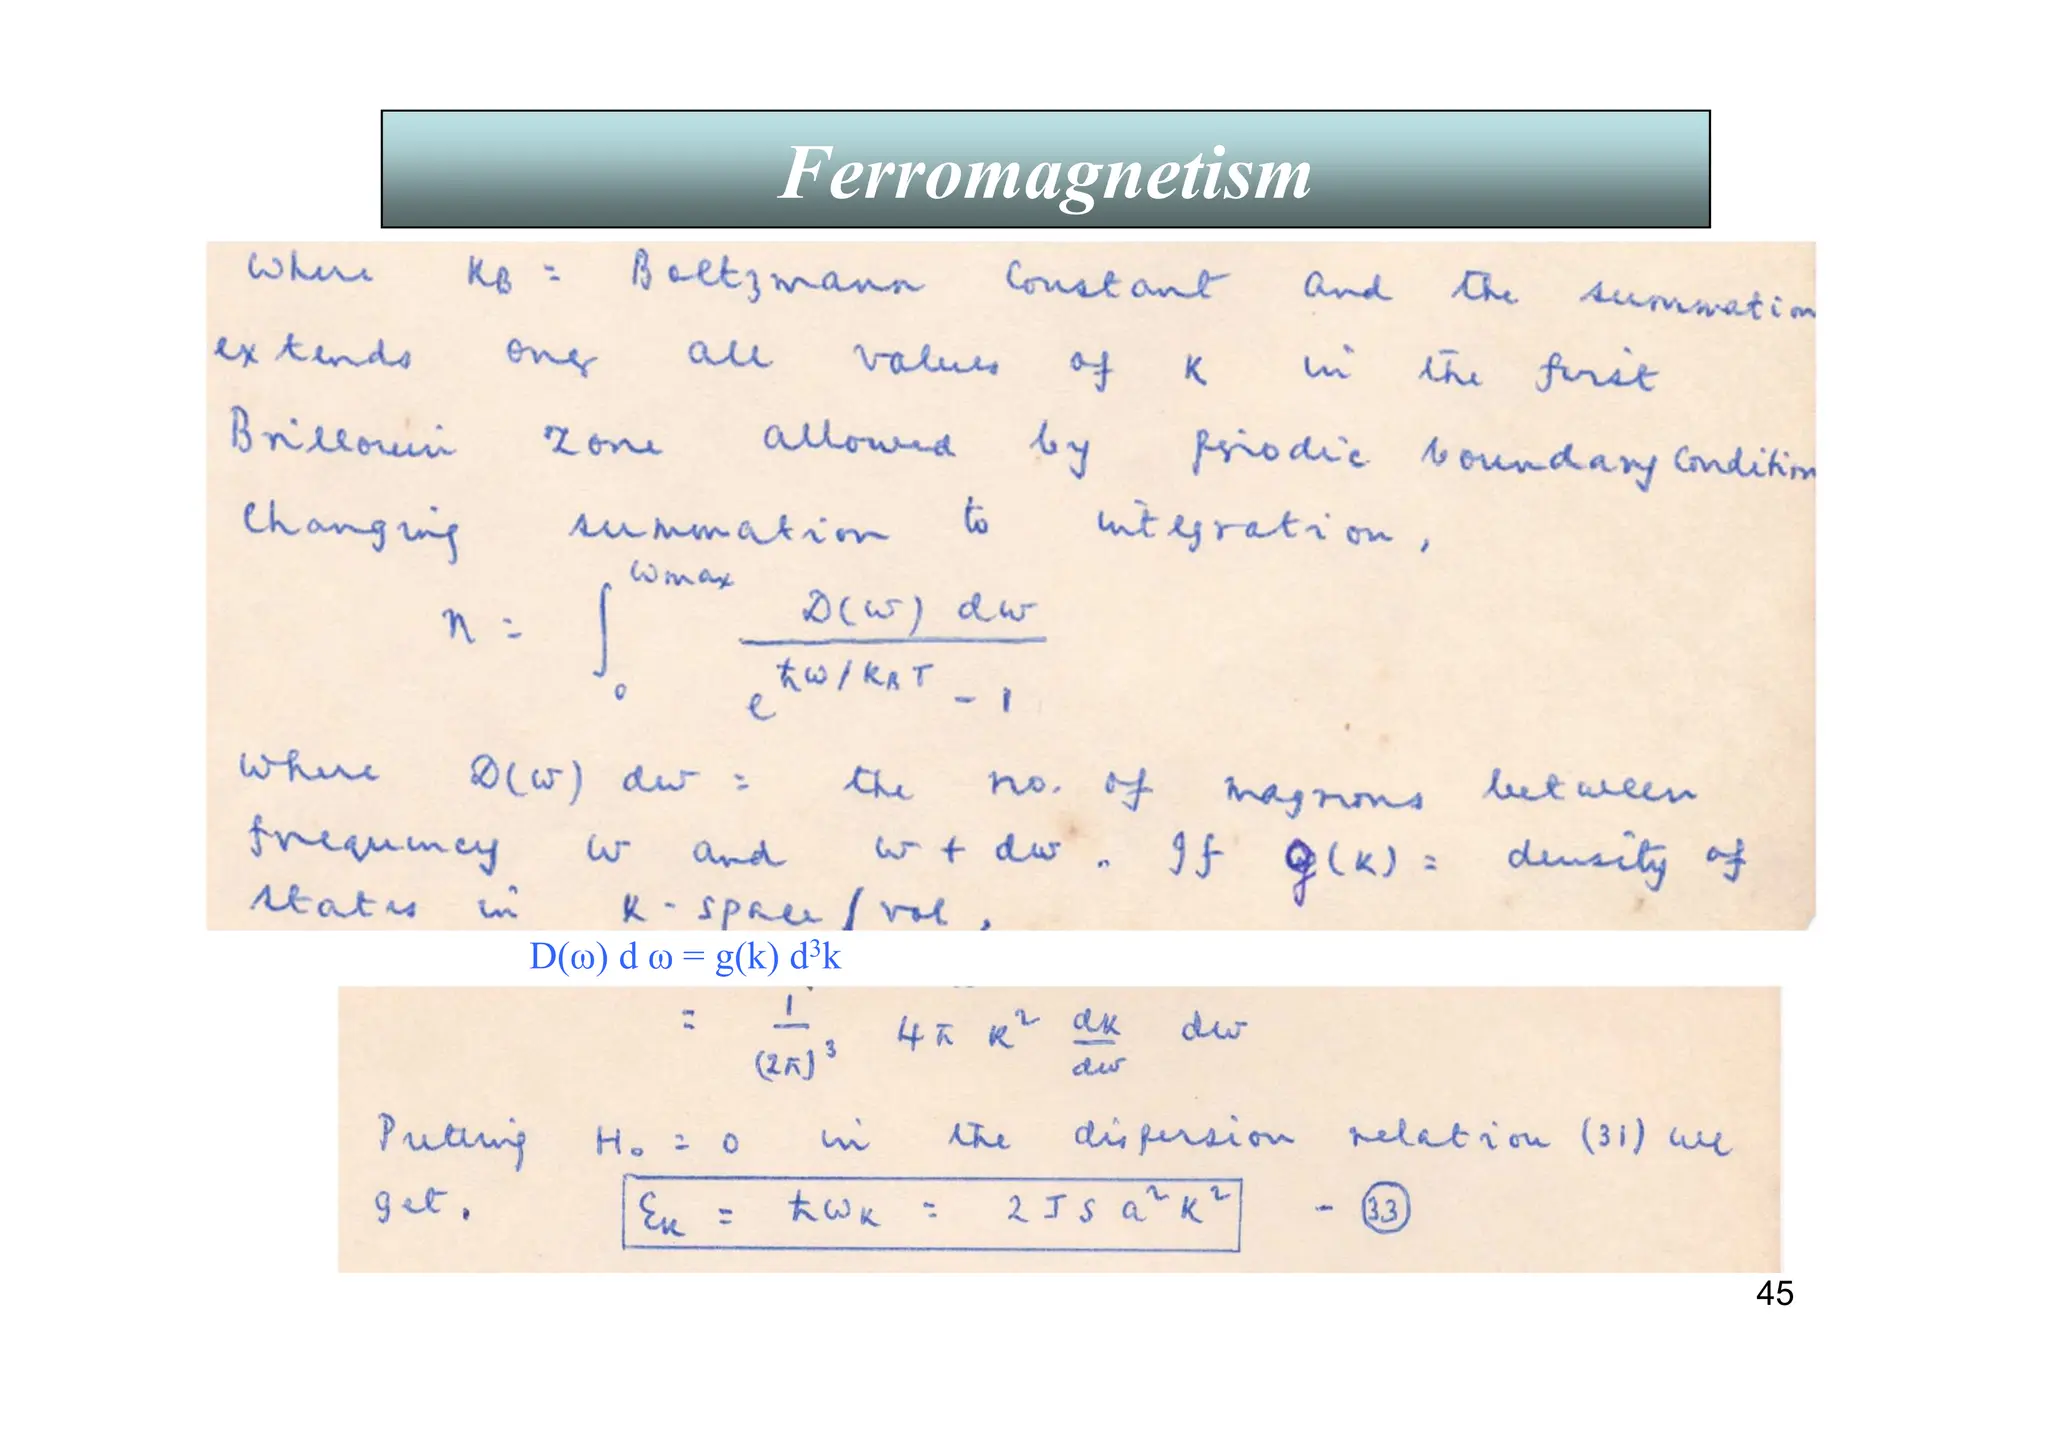 Ferromagnetism
Where KB = Boltzmann Constant and the summation
extends over all values of K in the first
Brillouin zone allowed by periodic boundary Condition
Changing summation to integration,
n = ∫₀^ωmax D(ω) dω / (e^(ħω/KBT) - 1)
Where D(ω) dω = the no. of magnons between
frequency ω and ω + dω. If g(K) = density of
states in K-space/vol,
D(ω) d ω = g(k) d³k
= 1/(2π)³ 4π K² dK/dω dω
Putting H₀ = 0 in the dispersion relation (31) we
get, εK = ħωK = 2JSa²K² - (33)
45